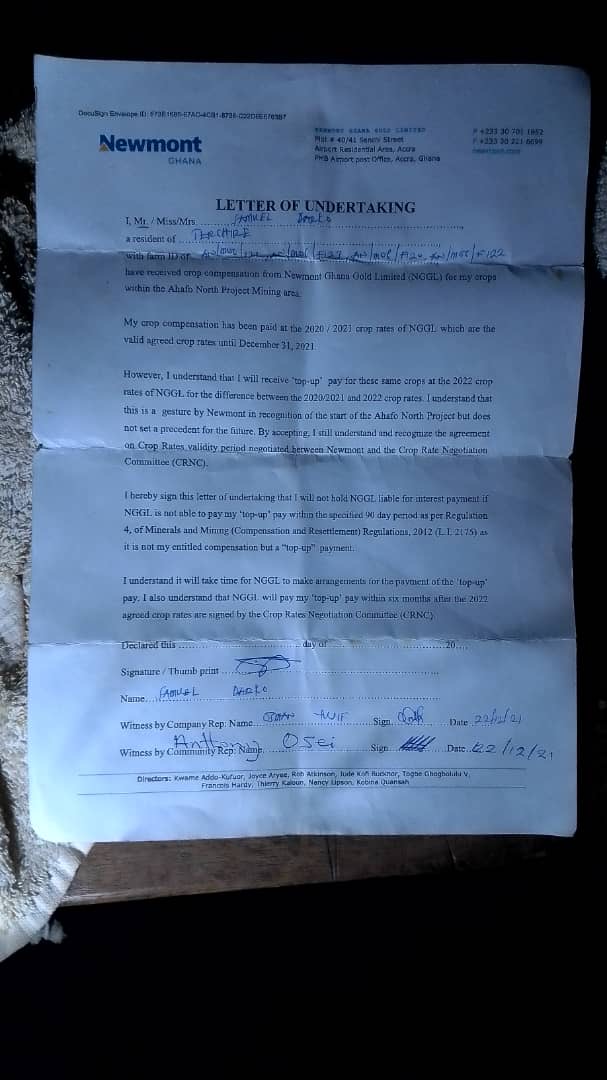 DocuSign Envelope ID:
Newmont
GHANA
NEWMONT GHANA GOLD LIMITED
Plot # 40/41 Senchi Street
Airport Residential Area, Accra
PMB Airport post Office, Accra, Ghana
P +233 30 701 1852
F +233 30 221 6699
LETTER OF UNDERTAKING
I, Mr. / Miss/Mrs. SAMUEL DARKO
a resident of TERCHIRE
with farm ID of
have received crop compensation from Newmont Ghana Gold Limited (NGGL) for my crops
within the Ahafo North Project Mining area.
My crop compensation has been paid at the 2020 / 2021 crop rates of NGGL which are the
valid agreed crop rates until December 31, 2021.
However, I understand that I will receive 'top-up' pay for these same crops at the 2022 crop
rates of NGGL for the difference between the 2020/2021 and 2022 crop rates. I understand that
this is a gesture by Newmont in recognition of the start of the Ahafo North Project but does
not set a precedent for the future. By accepting, I still understand and recognize the agreement
on Crop Rates validity period negotiated between Newmont and the Crop Rate Negotiation
Committee (CRNC).
I hereby sign this letter of undertaking that I will not hold NGGL liable for interest payment if
NGGL is not able to pay my 'top-up' pay within the specified 90 day period as per Regulation
4, of Minerals and Mining (Compensation and Resettlement) Regulations, 2012 (L.I. 2175) as
it is not my entitled compensation but a "top-up" payment.
I understand it will take time for NGGL to make arrangements for the payment of the 'top-up'
pay. I also understand that NGGL will pay my 'top-up' pay within six months after the 2022
agreed crop rates are signed by the Crop Rates Negotiation Committee (CRNC).
Declared this ........ day of ........ 20....
Signature / Thumb print
Name. SAMUEL DARKO
Witness by Company Rep: Name Sign Date 22/12/21
Witness by Community Rep: Name. Anthony Osei Sign Date 22/12/21
Directors: Kwame Addo-Kufuor, Joyce Aryee, Rob Atkinson, Jude Kofi Bucknor, Togbe Ghogbolulu V,
Francois Hardy, Thierry Kaloun, Nancy Lipson, Kobina Quansah